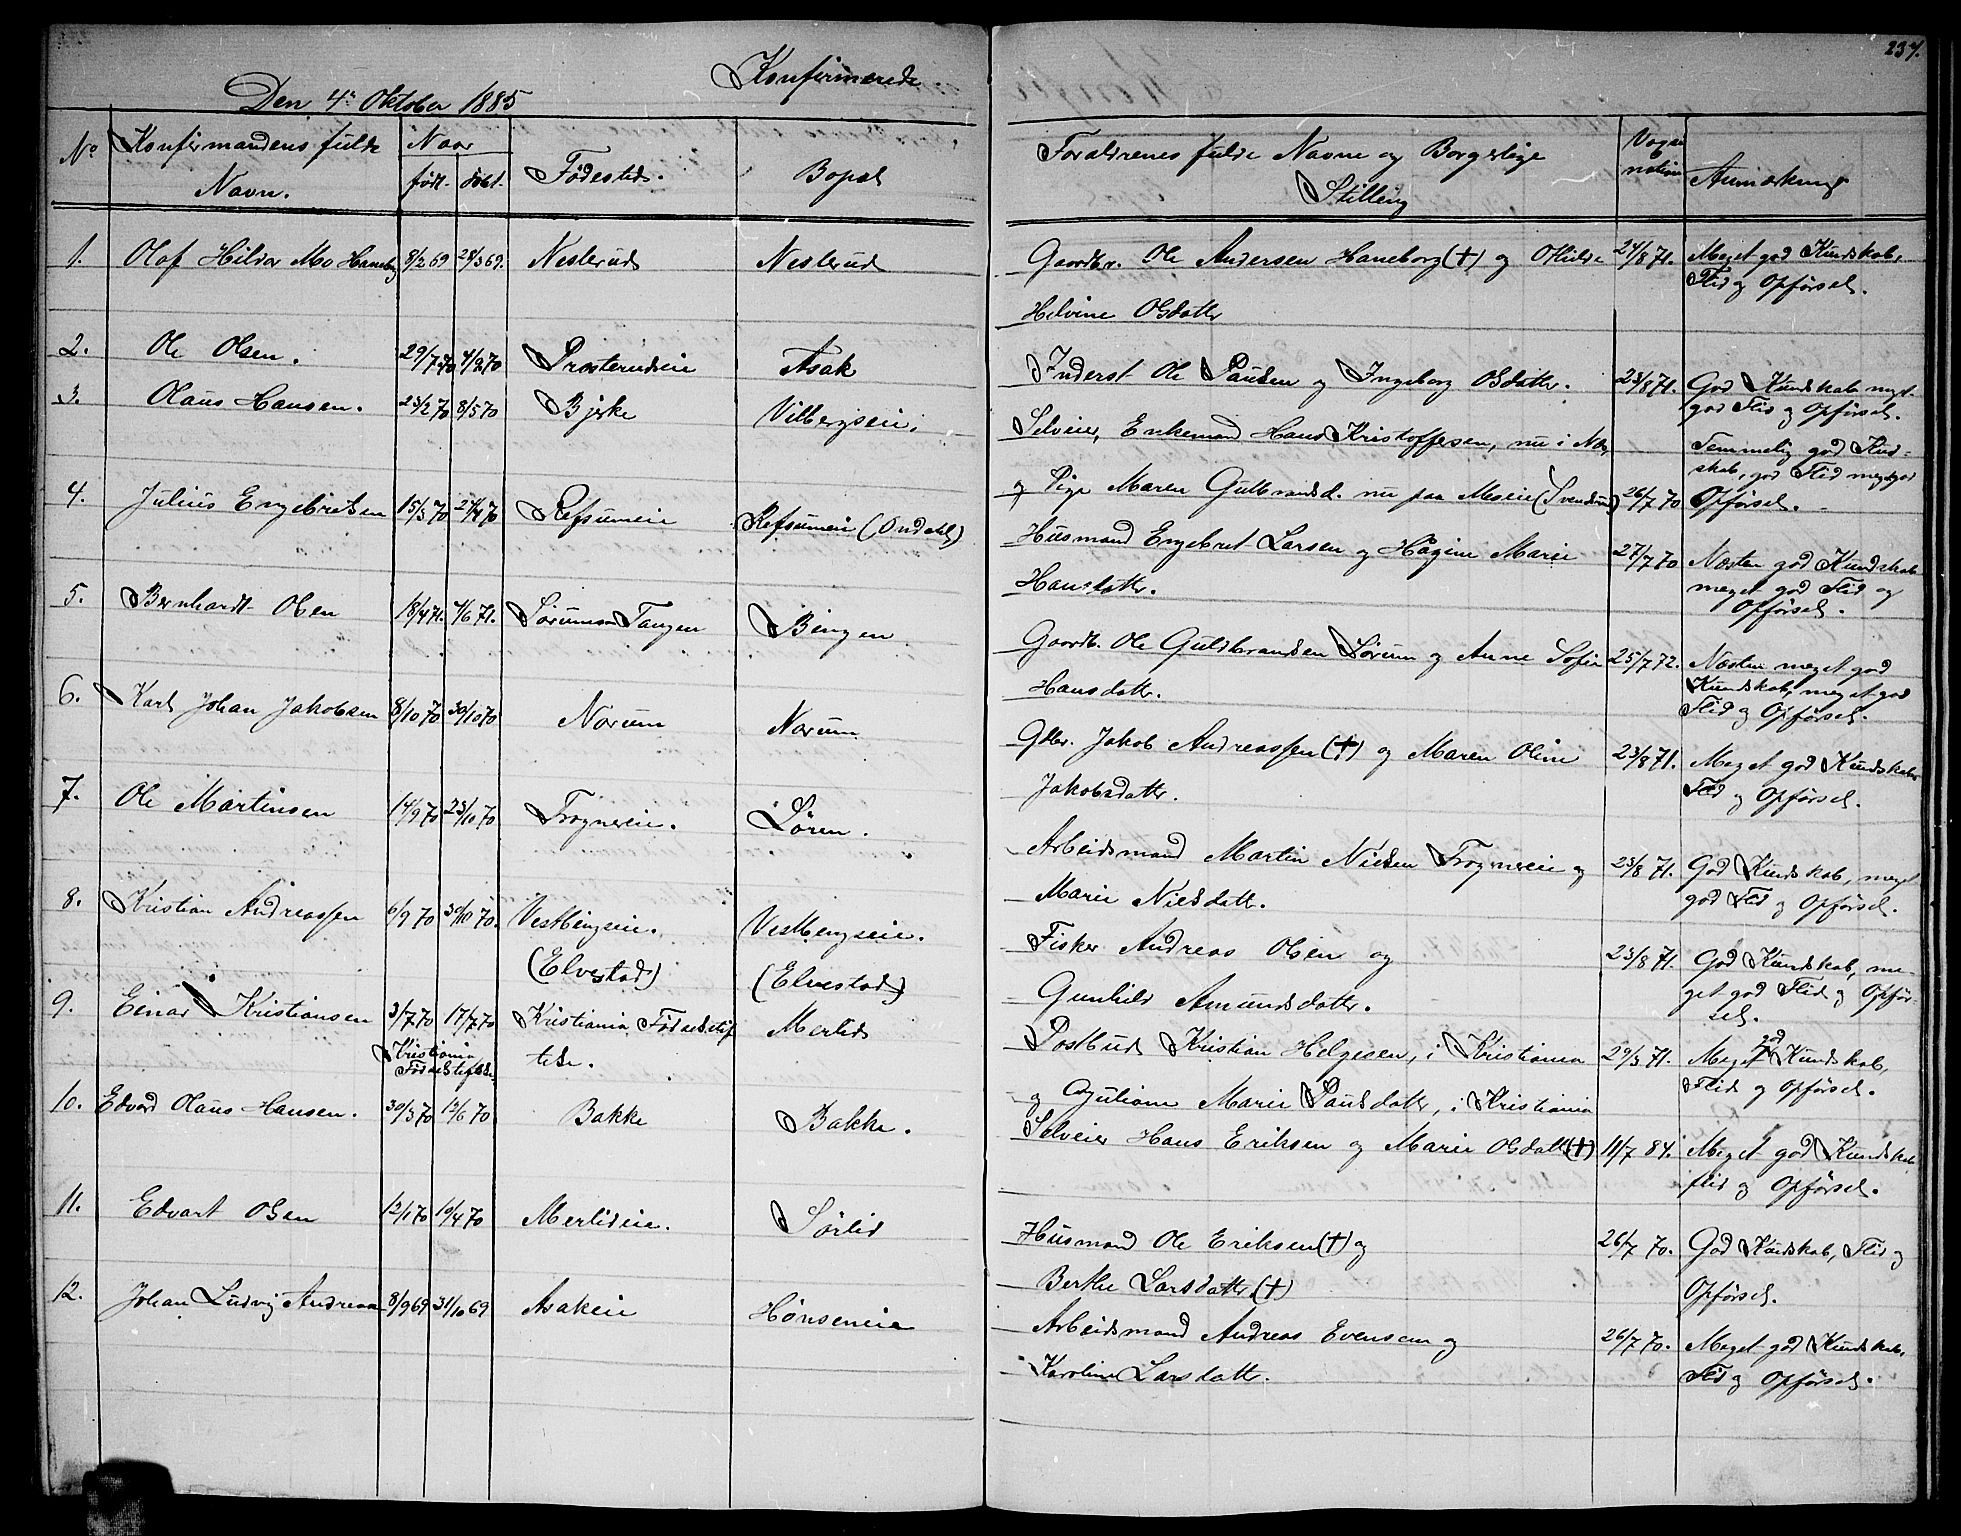 237.
Konfirmerede
Den 4de Oktober 1885
No Konfirmandens fulde Navn. Naar født. døbt. Fødested. Bopæl Forældrenes fulde Navne og Borgerlige Stilling Anmærkning
1. Olaf Hilvar Mo Haneborg 8/2 69 28/3 69. Nesterud Nesterud Gaardbr. Ole Andersen Haneborg (+) og 24/8 71. Meget god Kundskab,
Helvine Olsdatter Flid og Opførsel.
2. Ole Olsen. 29/7 70 4/9 70 Prosterudeie Asak Inderst Ole Paulsen og Ingeborg Olsdatter. 23/8 71. God Kundskab meget
god Flid og Opførsel.
3. Olaus Hansen. 23/2 70 8/5 70 Bjerke Vilbergseie. Selveier, Enkemand Hans Kristoffersen, nu i Næs, Temmelig god Kund-
skab, god Flid meget god
og Pige Maren Gulbrandsd. nu paa Meseie (Svendsrud) 26/7 70 Opførsel.
4. Julius Engebretsen 15/3 70 24/4 70 Refsumeie Refsumeie (Ondahl) Husmand Engebret Larsen og Hagine Marie 27/7 70 Næsten god Kundskab
Hansdatter. meget god Flid og
Opførsel.
5. Bernhardt Olsen 18/4 71. 4/6 71. Sørumsand Tangen Bingen Gaardb. Ole Guldbrandsen Sørum og Anne Sofie 25/7 72. Næsten meget god
Hansdatter. Kundskab, meget god
Flid og Opførsel.
6. Karl Johan Jakobsen 8/10 70 30/10 70 Norum Norum Gdbr. Jakob Andreassen (+) og Maren Oline 23/8 71. Meget god Kundskab
Jakobsdatter. Flid og Opførsel.
7. Ole Martinsen 14/9 70 23/10 70 Frognereie. Løren. Arbeidsmand Martin Nielsen Frognereie og 23/8 71. God Kundskab, meget
Marie Nielsdatt. god Flid og Opførsel.
8. Kristian Andreassen 6/9 70 30/10 70. Vestbyngseie. Vestbyngseie. Fisker Andreas Olsen og 23/8 71. God Kundskab, me-
(Elvestad) (Elvestad) Gunhild Amundsdatter. get god Flid og Opfør-
sel.
9. Einar Kristiansen 3/7 70 17/7 70 Kristiania Fødselsstif Merlid Postbud Kristian Helgesen, i Kristiania 29/3 71. Meget god Kundskab,
Kristiania Fødselsstiftelse. telse. og Gyuliane Marie Paulsdatter, i Kristiania Flid og Opførsel.
10. Edvard Olaus Hansen. 30/3 70 12/6 70 Bakke Bakke. Selveier Hans Eriksen og Marie Olsdatt (+) 11/7 84. Meget god Kundskab
flid og Opførsel.
11. Edvart Olsen 12/1 70 10/4 70 Merlideie. Sørlid Husmand Ole Eriksen (+) og 26/7 70. God Kundskab, Flid og
Berthe Larsdatter (+) Opførsel.
12. Johan Ludvig Andreas 8/9 69 31/10 69 Asakeie Hønseneie Arbeidsmand Andreas Evensen og 26/7 70. Meget god Kundskab,
Karoline Larsdatter. Flid og Opførsel.